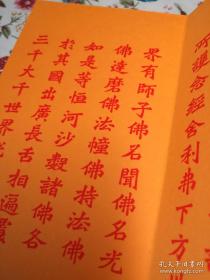 所說念經舍利弗下方世
界有師子佛名聞佛名光
佛達磨佛法幢佛持法佛
如是等恒河沙數諸佛各
於其國出廣長舌相遍覆
三千大千世界說